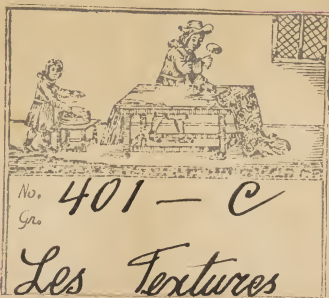 No. 401 – C
Gr.
Les Textures